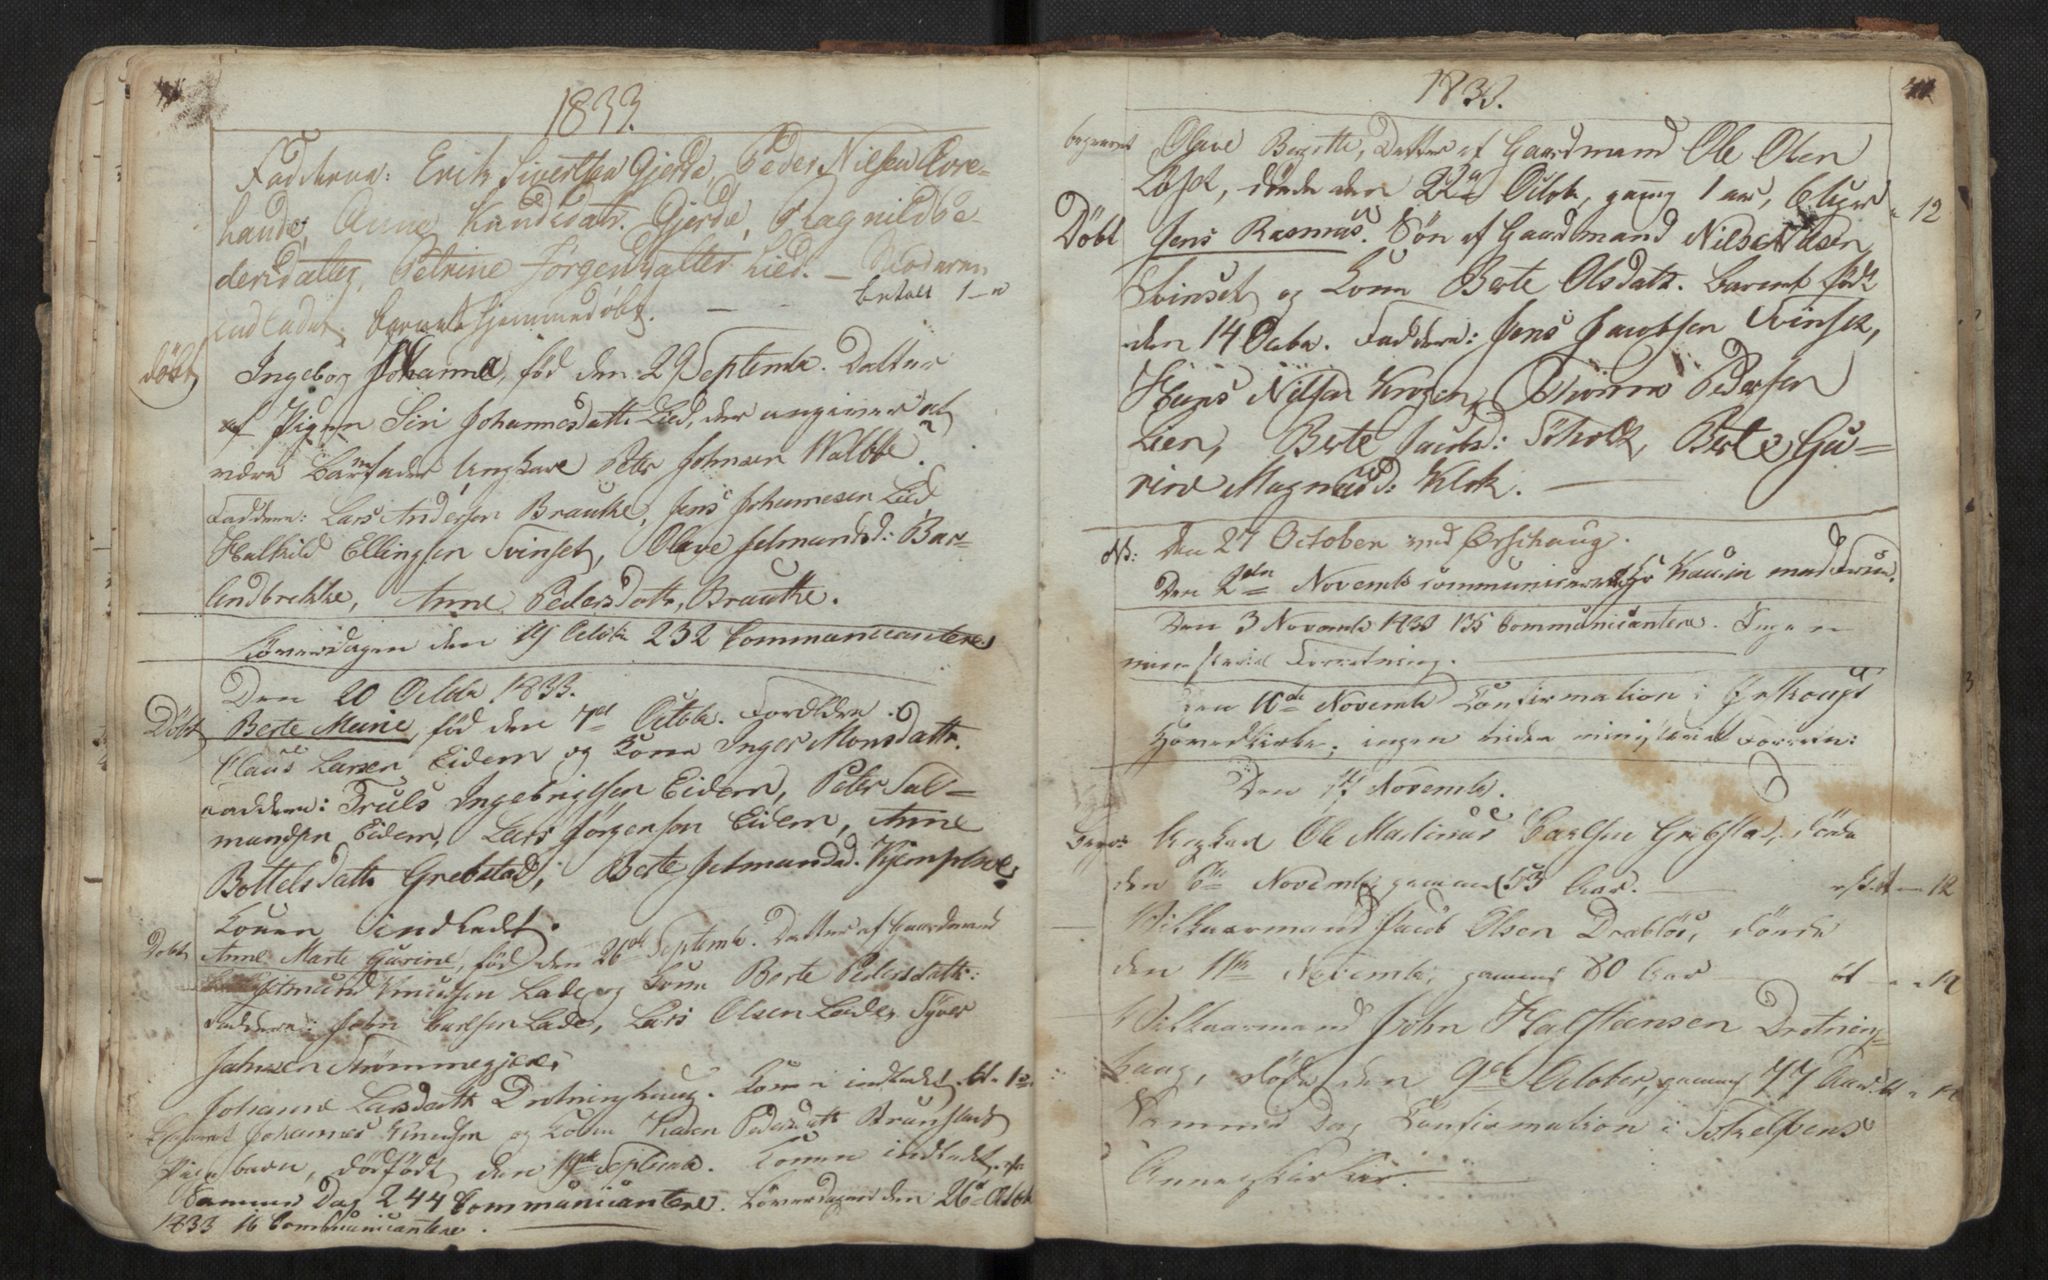 1833.
Fadderne: Erik Sivertsen Gjerde, Peder Nilsen Aure-
lande, Anne Knudsdatr. Gjerde, Ragnild Pe-
dersdatter, Petrine Jørgensdatter Lied. — Moderen
indledet, barnet hjemmedøbt. — betalt 1 —
døbt Ingeborg Johanna, fød den 29 Septembr. Datter
af Pigen Siri Johannesdattr. Lied, der angiver at
være Barnefader Ungkarl Peter Johnsen Walbøe.
Faddere: Lars Andersen Brautke, Jens Johannesen Lied
Halkild Ellingsen Svinset, Olave Jetmundsd: Bar-
Andbrekke, Anne Pedersdattr, Brautke.
Löverdagen den 19 Octbr 232 Communicantere
Den 20 Octbr. 1833.
Döbt Berte Marie, fød den 7de Octbr. Forældre
Claus Larsen Eidem og Kone Inger Monsdattr.
Faddere: Truls Ingebrigtsen Eidem, Peter Sal-
mundsen Eidem, Lars Jörgensen Eidem, Anne
Bottelsdattr Grebstad, Berte Jetmundsd. Kjemphoe.
Konen indledt.
Döbt Anne Marte Gurine, föd den 26de Septembr. Datter af Gaardmand
Jetmund Knudsen Lade og Kone Berte Pedersdattr:
Faddere: John Carlsen Lade, Lars Olsen Lade, Syver
Johnsen Strømmegjer,
Johanne Larsdattr Drotninghaug. Konen indledet. bt. 1
Johannes Knudsen og Kone Karen Pedersdattr Strønstad
Pigebarn, dødfödt den 19de Septembr. Konen indledet.
Samme Dag 244 Communicantere. Löverdagen den 26de Octbr
1833 16 Communicantere.
1833.
begravet Olave Birgitte, Datter af Gaardmand Ole Olsen
Løset, døde den 22de Octbr, gamg 1 aar, 6 Uger 12
Döbt Jens Rasmus. Sön af Gaardmand Nils Nilsen
Svinset og Kone Berte Olsdatr. Barnet född
den 14 Octbr. Faddere: Jens Jacobsen Svinset,
Hans Nilsen Krogen, Thomas Pedersen
Lien, Berte Jacobsd: Söholt, Berte Gu-
rine Magnusd: Klok.
NB: Den 27 October ved Ørschoug.
Den 2den Novembr communicerede Hr Kausin med Frue.
Den 3 Novembr 1833 135 Communicantere. Ingen
ministerial Forretning.
Den 10de Novembr Confirmation i Ørskougs
Hovedkirke; ingen videre ministerial Forretn:
Den 17 Novembr.
Ungkarl Ole Martinus Carlsen Grebstad, döde
den 6te Novembr gammel 53 Aar. — 12
Vilkaarmand Jacob Olsen Drabløs, døde
den 11te Novembr, gammel 80 Aar — bt — 12
Vilkaarmand John Halstensen Drotning-
haug, døde den 9de October, gammel 77 Aar. bt
Samme Dag Confirmation i Stokelfvens
Annexkirke.